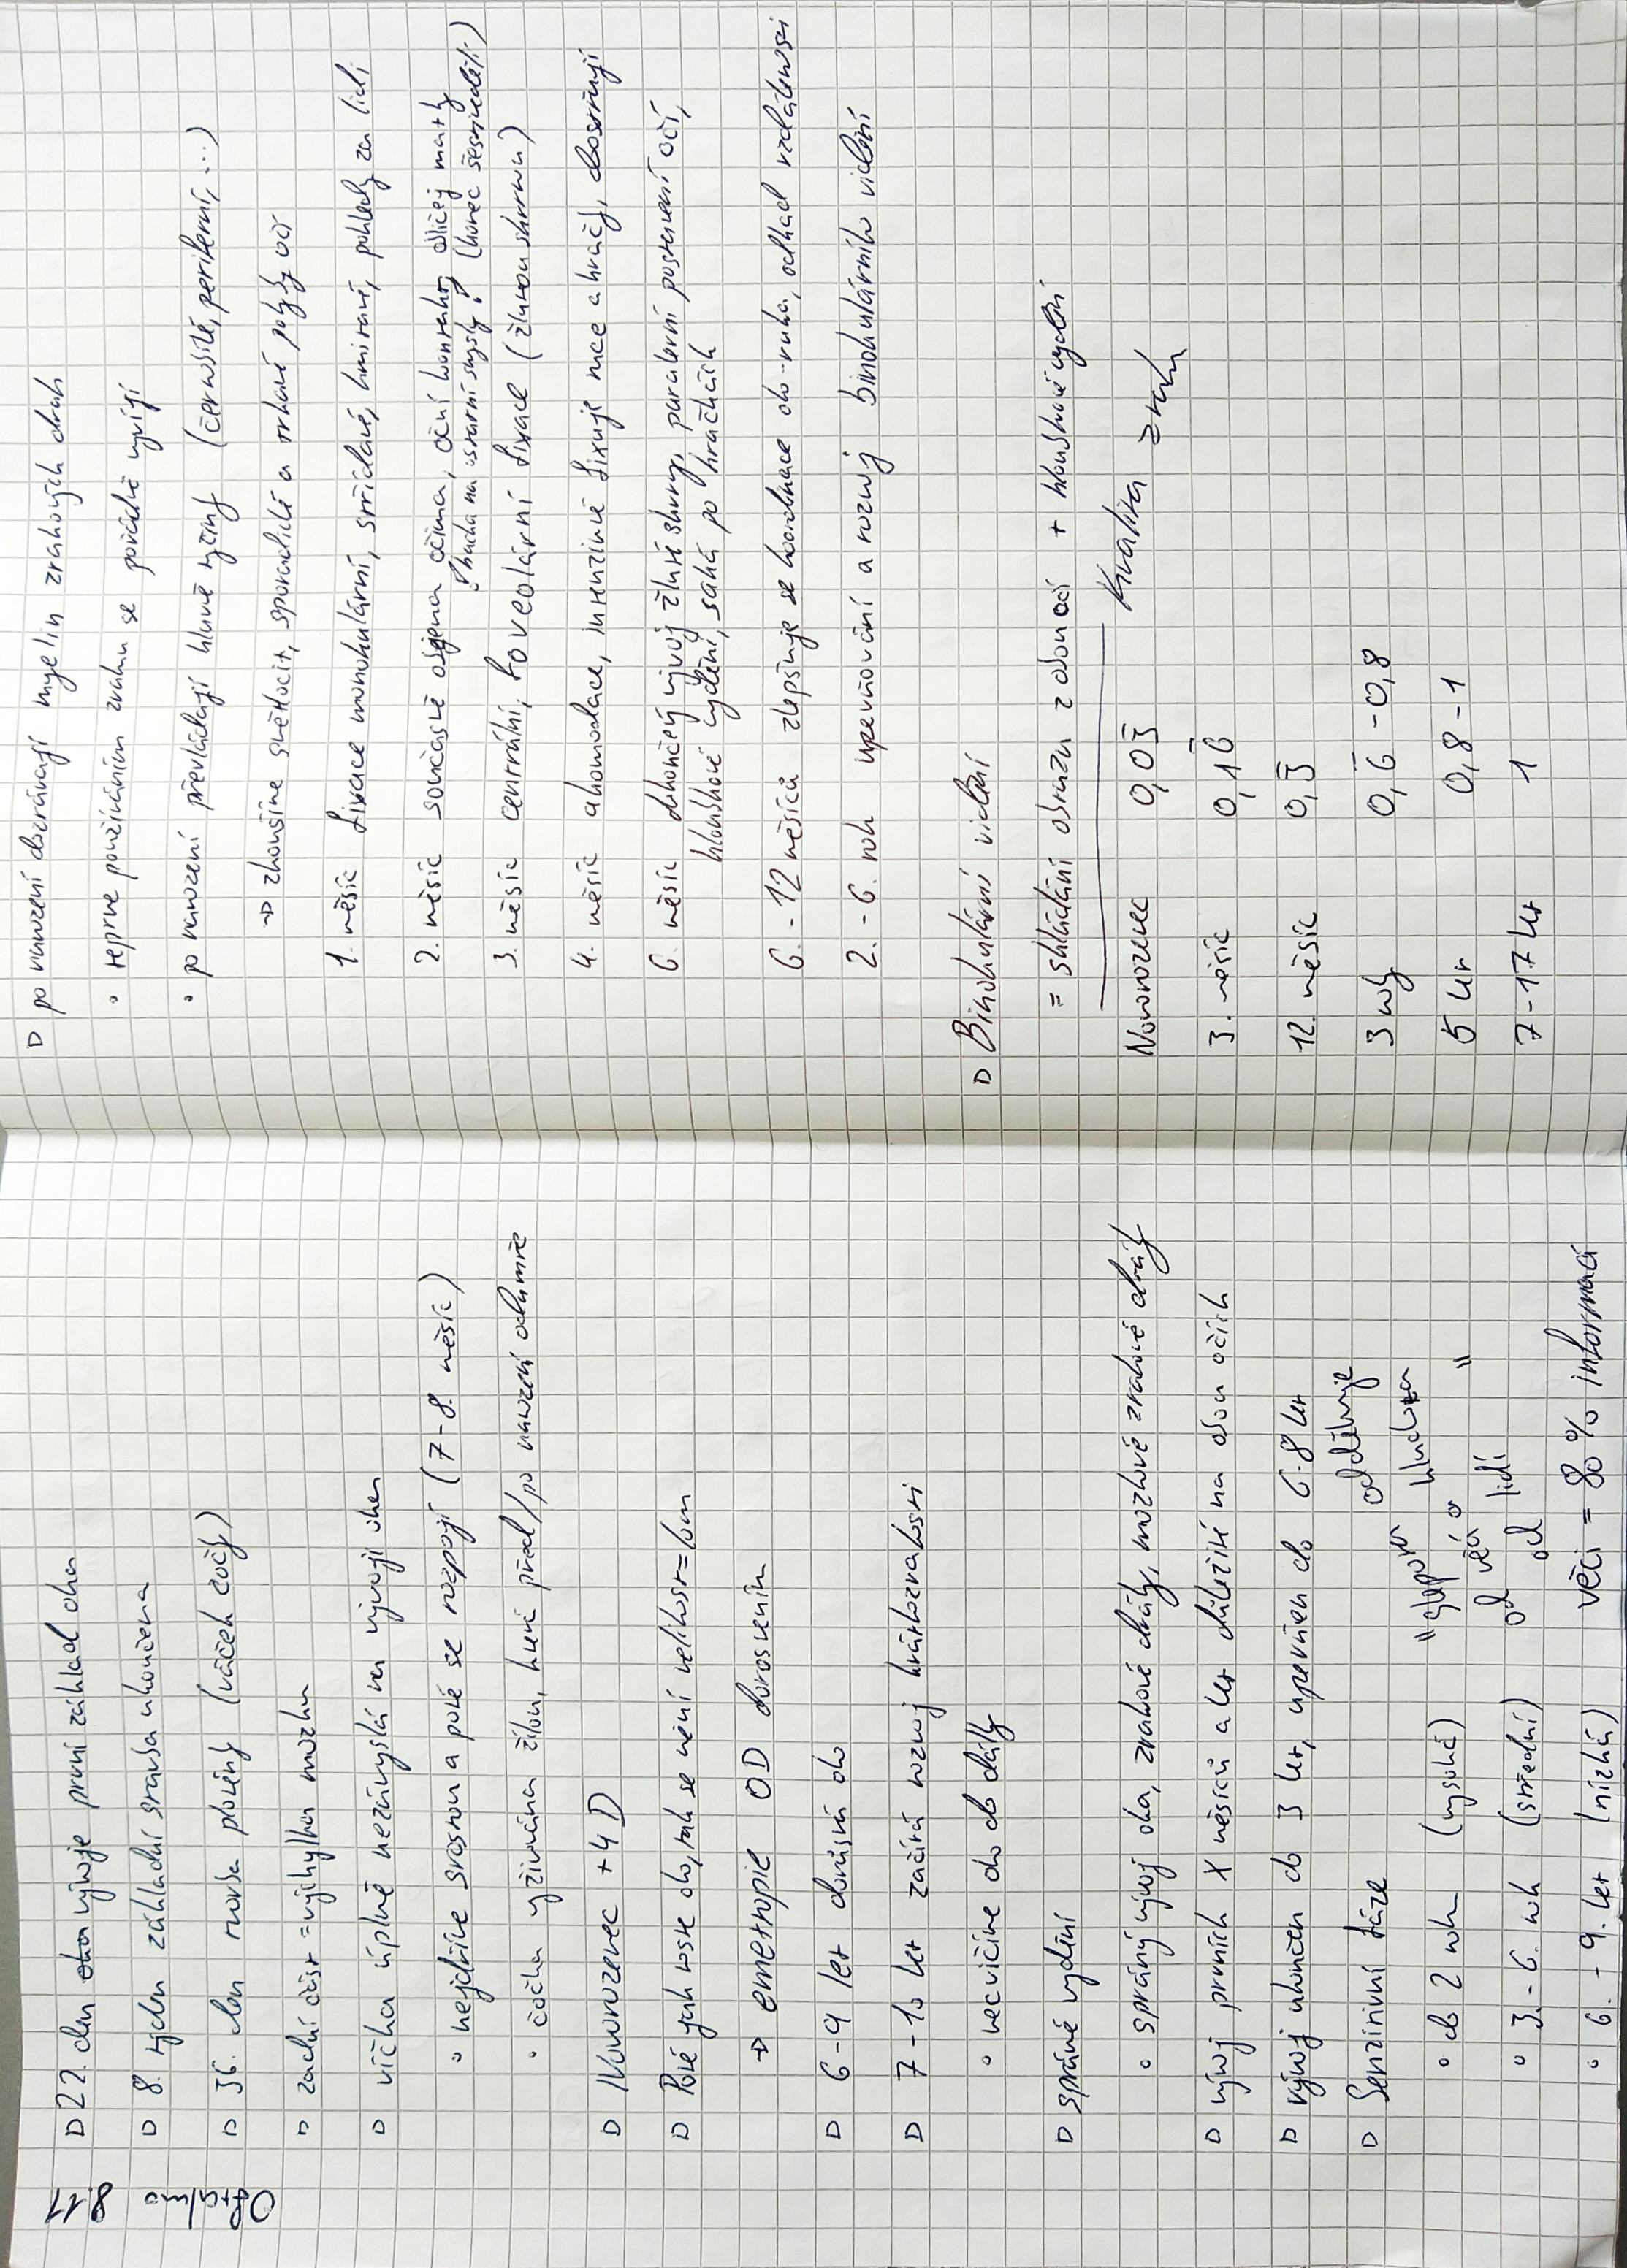 8.11
Oftalmo
▷ 22. den oka vývoje první základ oka
▷ 8. týden základní stavba ukončena
▷ 36. den tvorba ploténky (váček čočky)
▷ zadní část = výchylka mozku
▷ víčka úplně nezávyslá na vývoji oken
◦ nejdříve srostou a poté se rozpojí (7-8. měsíc)
◦ čočka vyživována žílou, která před/po narození odumře
▷ Novorozenec +4 D
▷ Poté jak roste oko, tak se mění velikost = lom
→ emetropie OD dorostením
▷ 6-9 let dorůstá oko
▷ 7-10 let začíná rozvoj krátkozrakosti
◦ necvičíme oko do dálky
▷ správné vydění
◦ správný vývoj oka, zrakové dráhy, mozkové zrakové dráhy
▷ vývoj prvních X měsíců a let důležití na obou očích
▷ vývoj ukončen do 3 let, upevněn do 6-8 let
▷ Senzitivní fáze
◦ do 2 roku (vysoká)
◦ 3.-6. rok (střední)
◦ 6.-9. let (nízká)
"slepota odděluje
od věcí, hluchota
od lidí"
věci = 80% informací
▷ po narození dozrávají myelin zrakových drah
◦ teprve používáním zraku se pořádně vyvíjí
◦ po narození převládají hlavně tyčiny (černobílé, periferní, ...)
→ zkoušíme světlocit, sporadické a trhavé pohyby očí
1. měsíc fixace monokulární, střídavé, kmitavé, pohledy za lidi
2. měsíc současně oběma očima, oční kontakt, obličej matky
kouká na ústa (konec šestinedělí)
3. měsíc centrální, foveolární fixace (žlutou skvrnou)
4. měsíc akomodace, intenzivně fixuje ruce a hračky, doostřují
6. měsíc dokončený vývoj žluté skvrny, paralelní postavení očí,
hloubkové vydění, sahá po hračkách
6.-12 měsíců zlepšuje se koordinace oko-ruka, odhad vzdálenosti
2.-6. rok upevňování a rozvoj binokulárního vidění
▷ Binokulární vidění
= skládání obrazu z obou očí + hloubkové vydění
Kvalita zraku
Novorozenec 0,03̅
3. měsíc 0,16̅
12. měsíc 0,3̅
3 roky 0,6̅ - 0,8
5 let 0,8 - 1
7-17 let 1